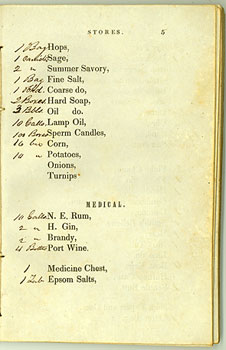 STORES. 5
1 Bag Hops,
Sage,
2 " Summer Savory,
1 Bag Fine Salt,
1 Coarse do,
2 Boxes Hard Soap,
3 Bbls Oil do.
10 Galls. Lamp Oil,
Boxes Sperm Candles,
Corn,
10 " Potatoes,
Onions,
Turnips
MEDICAL.
10 Galls N. E. Rum,
2 " H. Gin,
2 " Brandy,
4 Port Wine.
1 Medicine Chest,
1 Epsom Salts,